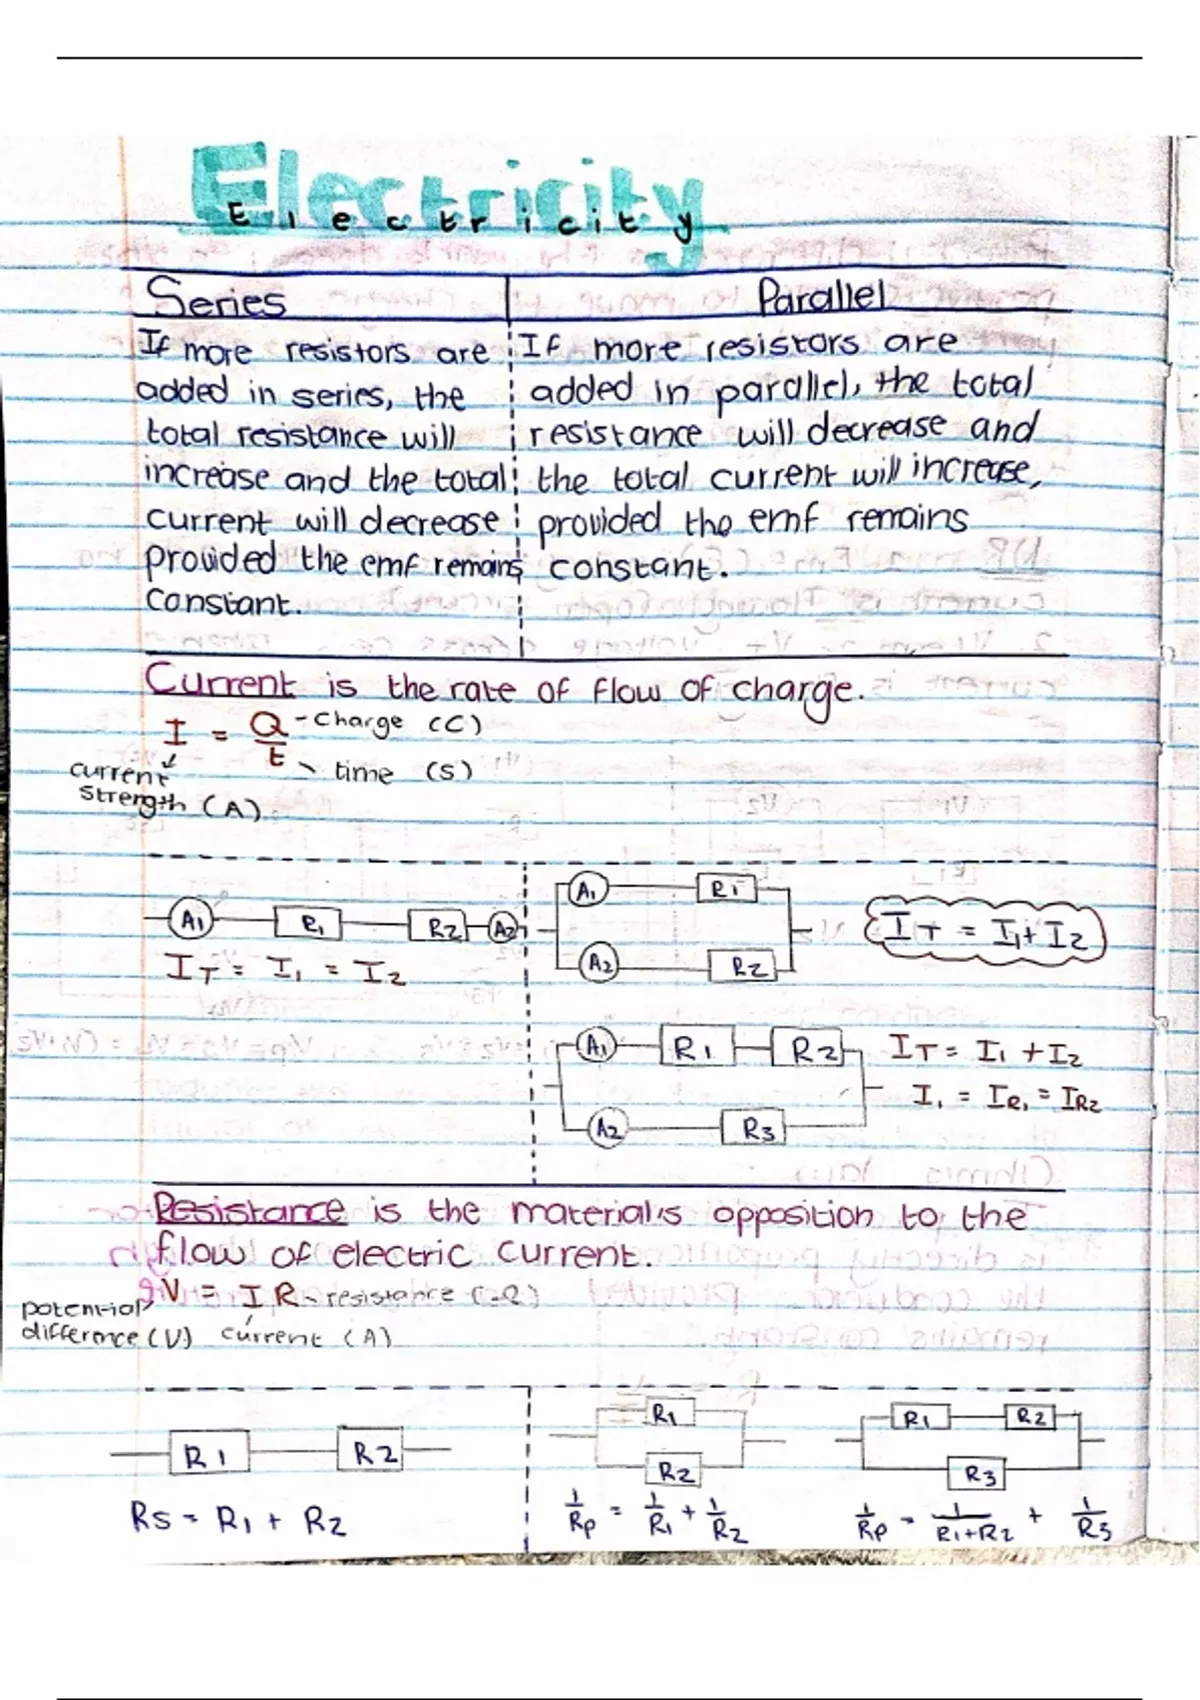 Electricity
Electricity
Series
Parallel
If more resistors are
added in series, the
total resistance will
increase and the total
current will decrease
provided the emf remains
constant.
If more resistors are
added in parallel, the total
resistance will decrease and
the total current will increase,
provided the emf remains
constant.
Current is the rate of flow of charge.
I = Q/t
- Charge (C)
time (s)
current
strength (A)
A1 R1 R2 A2
IT = I1 = I2
A1 R1
A2 R2
IT = I1 + I2
A1 R1 R2
A2 R3
IT = I1 + I2
I1 = IR1 = IR2
Resistance is the material's opposition to the
flow of electric current.
V = I R - resistance (Ω)
potential
difference (V) current (A)
R1 R2
Rs = R1 + R2
R1
R2
1/Rp = 1/R1 + 1/R2
R1 R2
R3
1/Rp = 1/R1+R2 + 1/R3